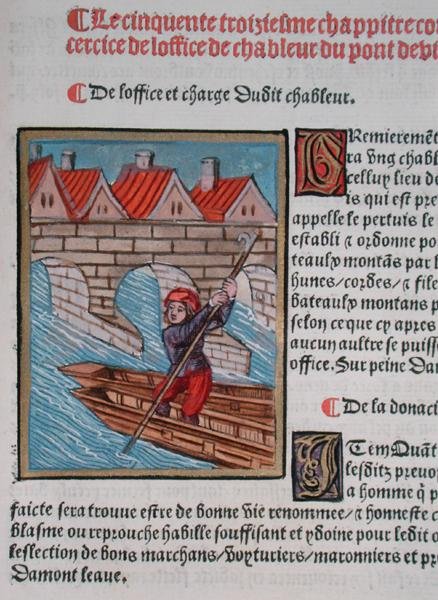 Le cinquente troiziesme chappitre co
cercice de loffice de chableur du pont de pr
De loffice et charge Dudit chableur.
PRemieremēt
ra vng chabl
celluy lieu de
is qui est pre
appelle le pertuis le
establi ⁊ ordonne po
teaulx montās par l
hunes/cordes/⁊ file
bateaulx montans p
selon ce que cy apres
aucun aultre se puiss
office. Sur peine Dam
De la donaci
ITem Quāt
lesditz preuo
a homme q̄ p
faicte sera trouue estre de bonne vie renommee/⁊ honneste c
blasme ou reprouche habille souffisant et ydoine pour ledit o
leslection de bons marchans/voyturiers/maronniers et pr
Damont leaue.